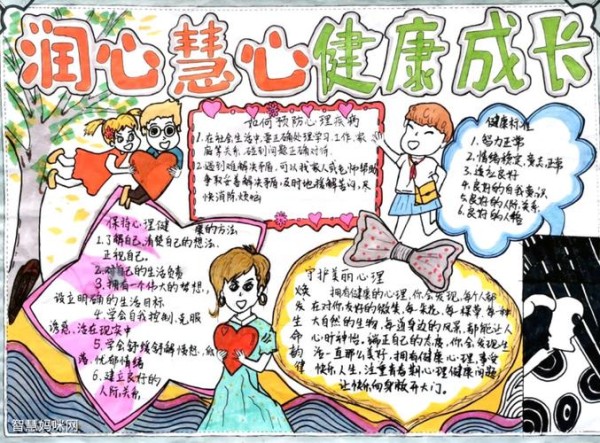 润心慧心健康成长
如何预防心理疾病
1.在社会生活中,要正确处理学习、工作、家
庭等关系,碰到问题正确对待.
2.遇到难解决矛盾,可以找家人或老师帮助
争取妥善解决矛盾,及时地排解苦闷,尽
快消除烦恼
健康标准
1.智力正常
2.情绪稳定,
3.适应良好
4.良好的自我意识
5.良好的人际关系
6.良好的人格
保持心理健康的方法
1.了解自己,清楚自己的想法.
正视自己.
2.对自己的生活负责
3.拥有一个伟大的梦想,
设立明确的生活目标
4.学会自我控制,克服
诱惑,活在现实中
5.学会舒缓舒解情怒、
忧郁情绪
6.建立良好的
人际关系
守护美丽心理
焕发生命的健
拥有健康的心理,你会发现,每个人都
在对你友好的微笑,每一朵花,每一棵草,每一种
大自然的生物,每道身边的风景,都能让人
心旷神怡,端正自己的态度,你会发现生
活一直那么美好,拥有健康心理,享受
快乐人生,注重青春期心理健康问题
让快乐向身躯开大门.
智慧妈咪网